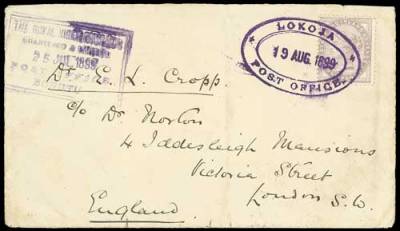 THE ROYAL NIGER
CHARTERED &
25 JUL 1899
POST OFFICE
LOKOJA
19 AUG. 1899
POST OFFICE.
Dr. C. L. Cropp.
c/o Dr Norton
4 Iddesleigh Mansions
Victoria Street
London S.W.
England.